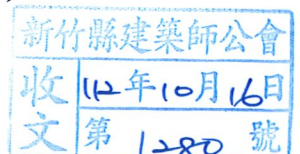 新竹縣建築師公會
收文
112年10月16日
第 1280 號